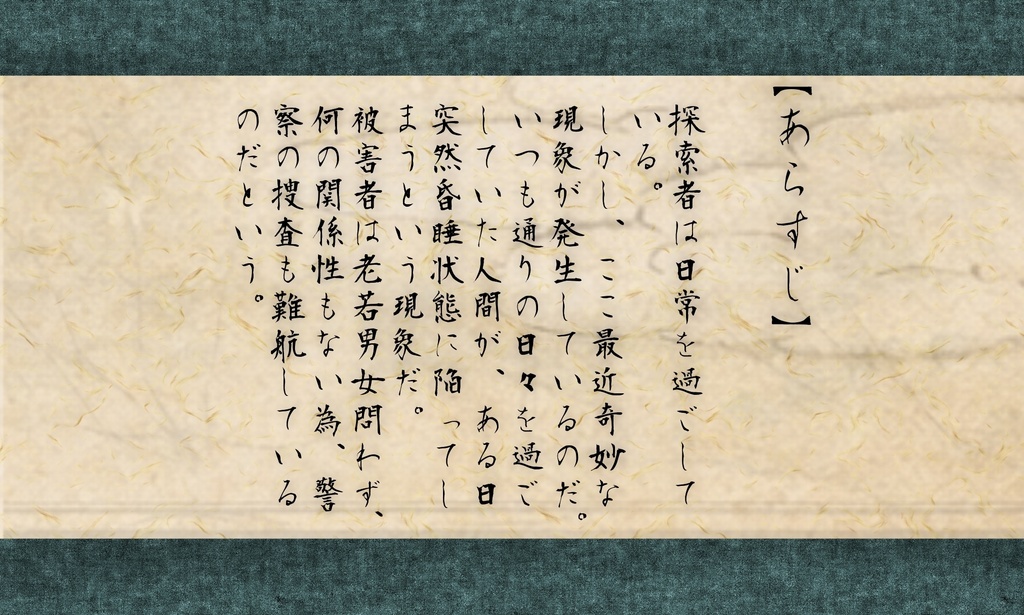 【あらすじ】
探索者は日常を過ごして
いる。
しかし、ここ最近奇妙な
現象が発生しているのだ。
いつも通りの日々を過ご
していた人間が、ある日
突然昏睡状態に陥ってし
まうという現象だ。
被害者は老若男女問わず、
何の関係性もない為、警
察の捜査も難航している
のだという。